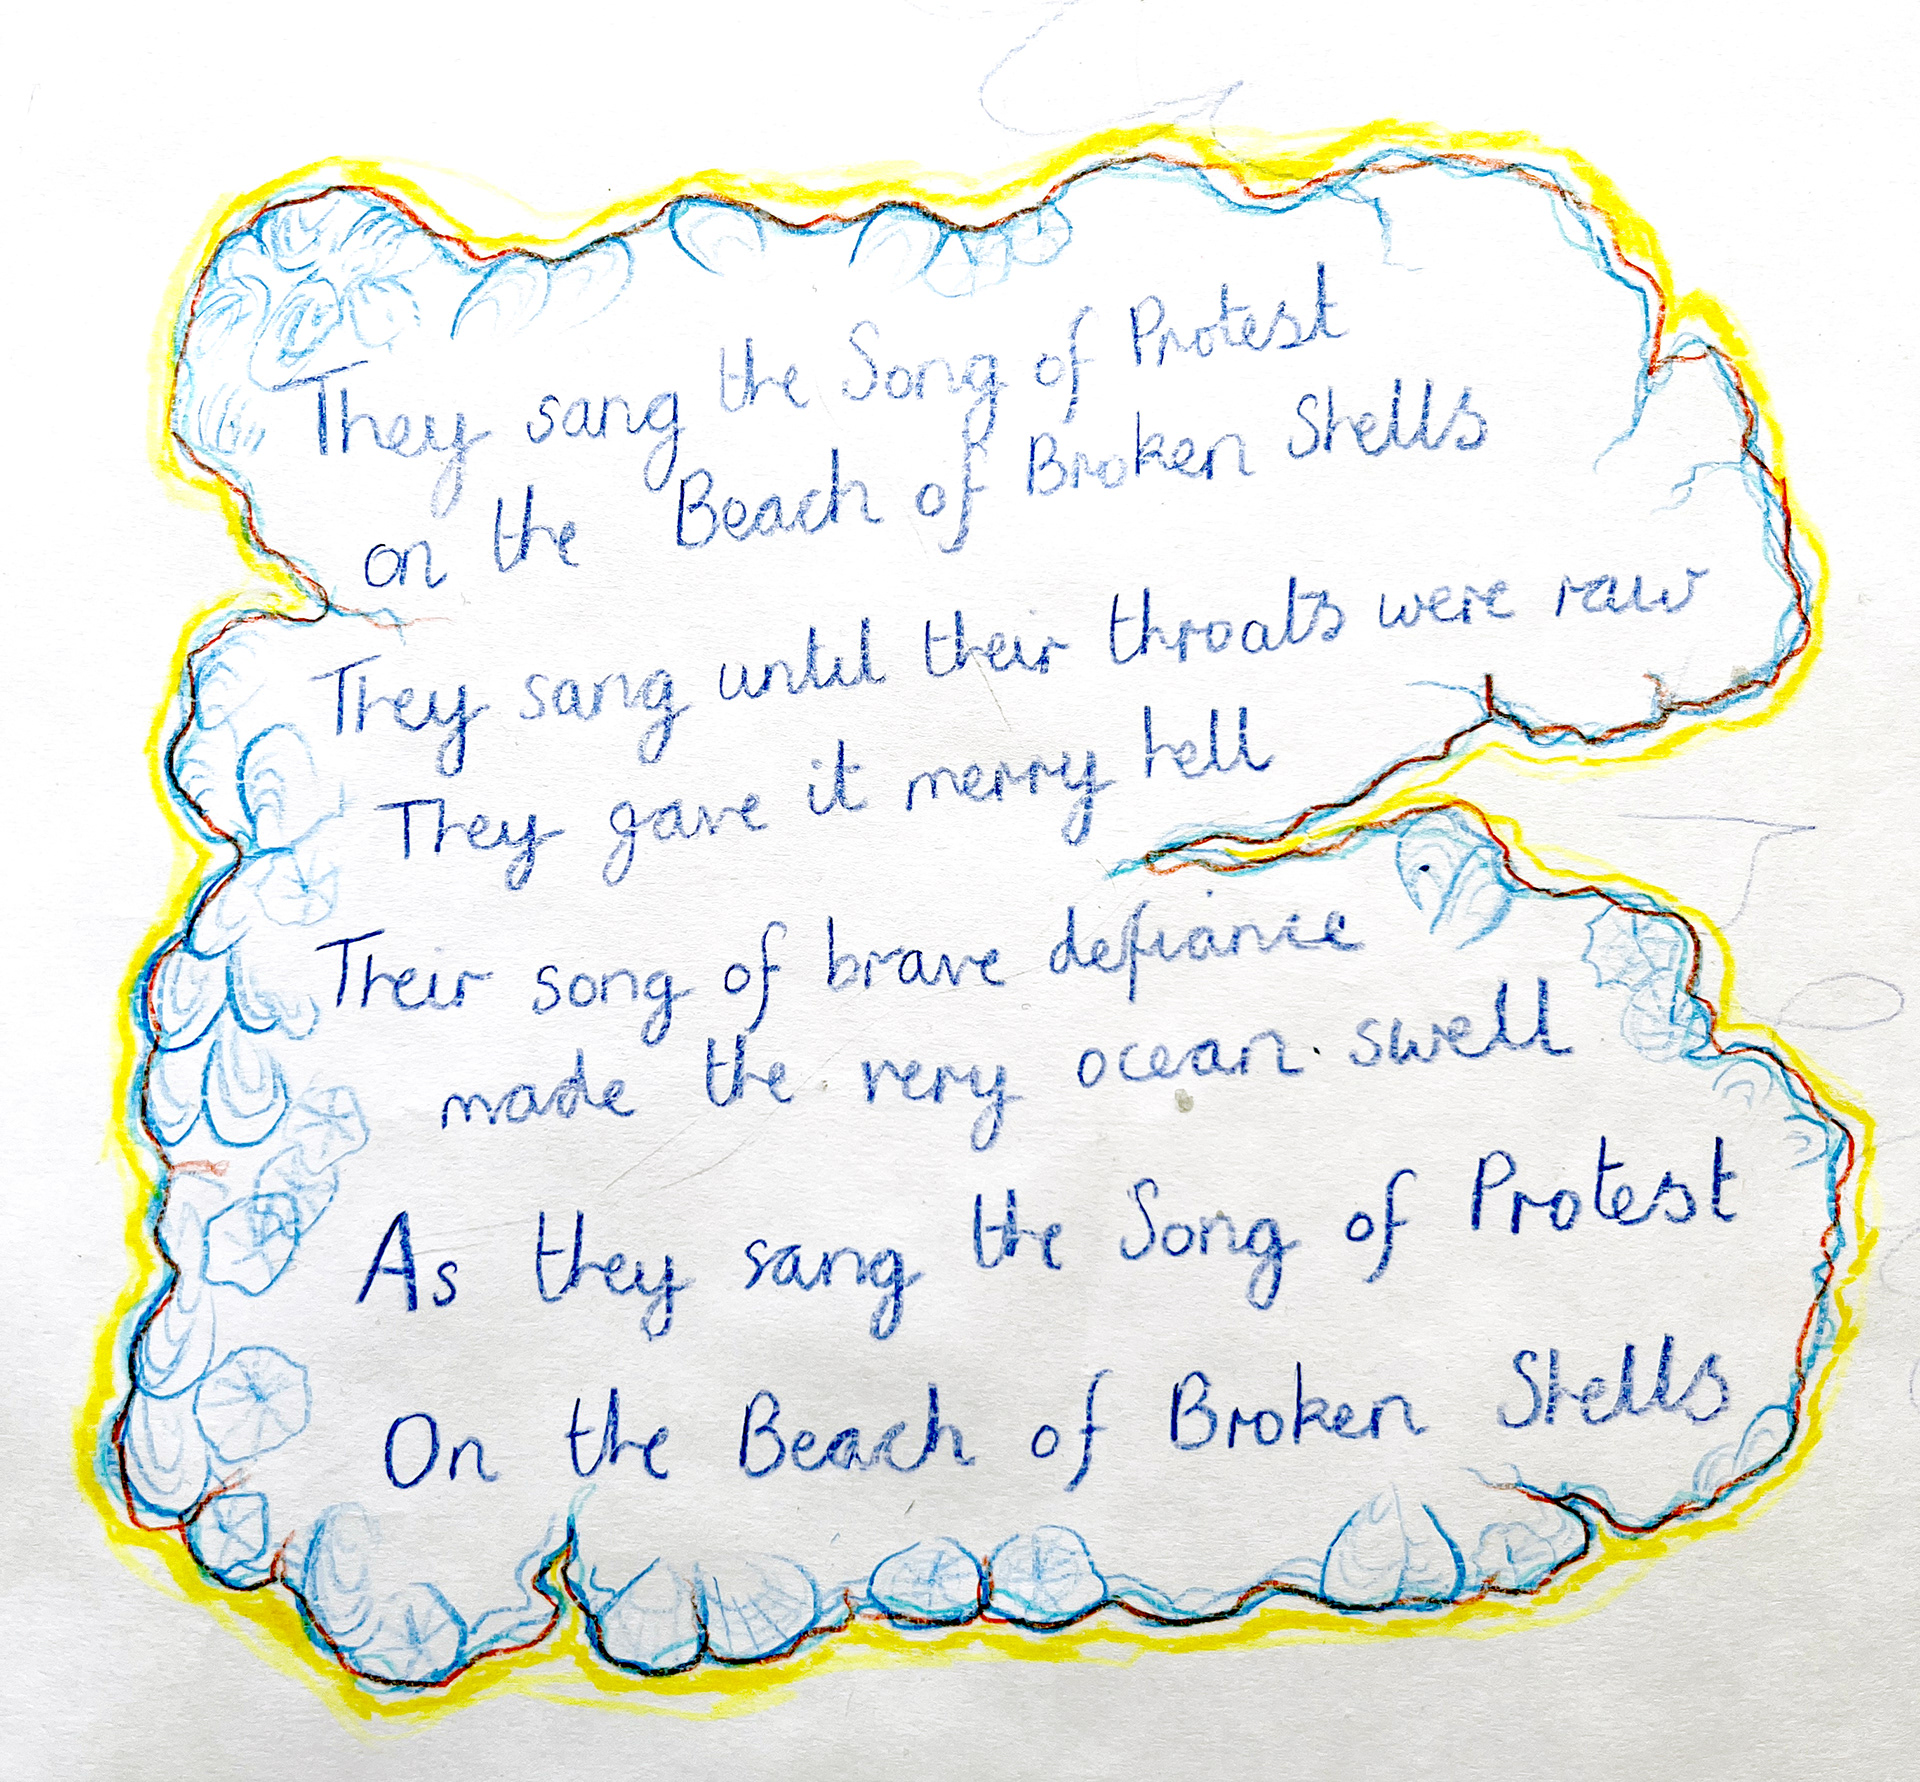 They sang the Song of Protest
on the Beach of Broken Shells
They sang until their throats were raw
They gave it merry hell
Their song of brave defiance
made the very ocean swell
As they sang the Song of Protest
On the Beach of Broken Shells